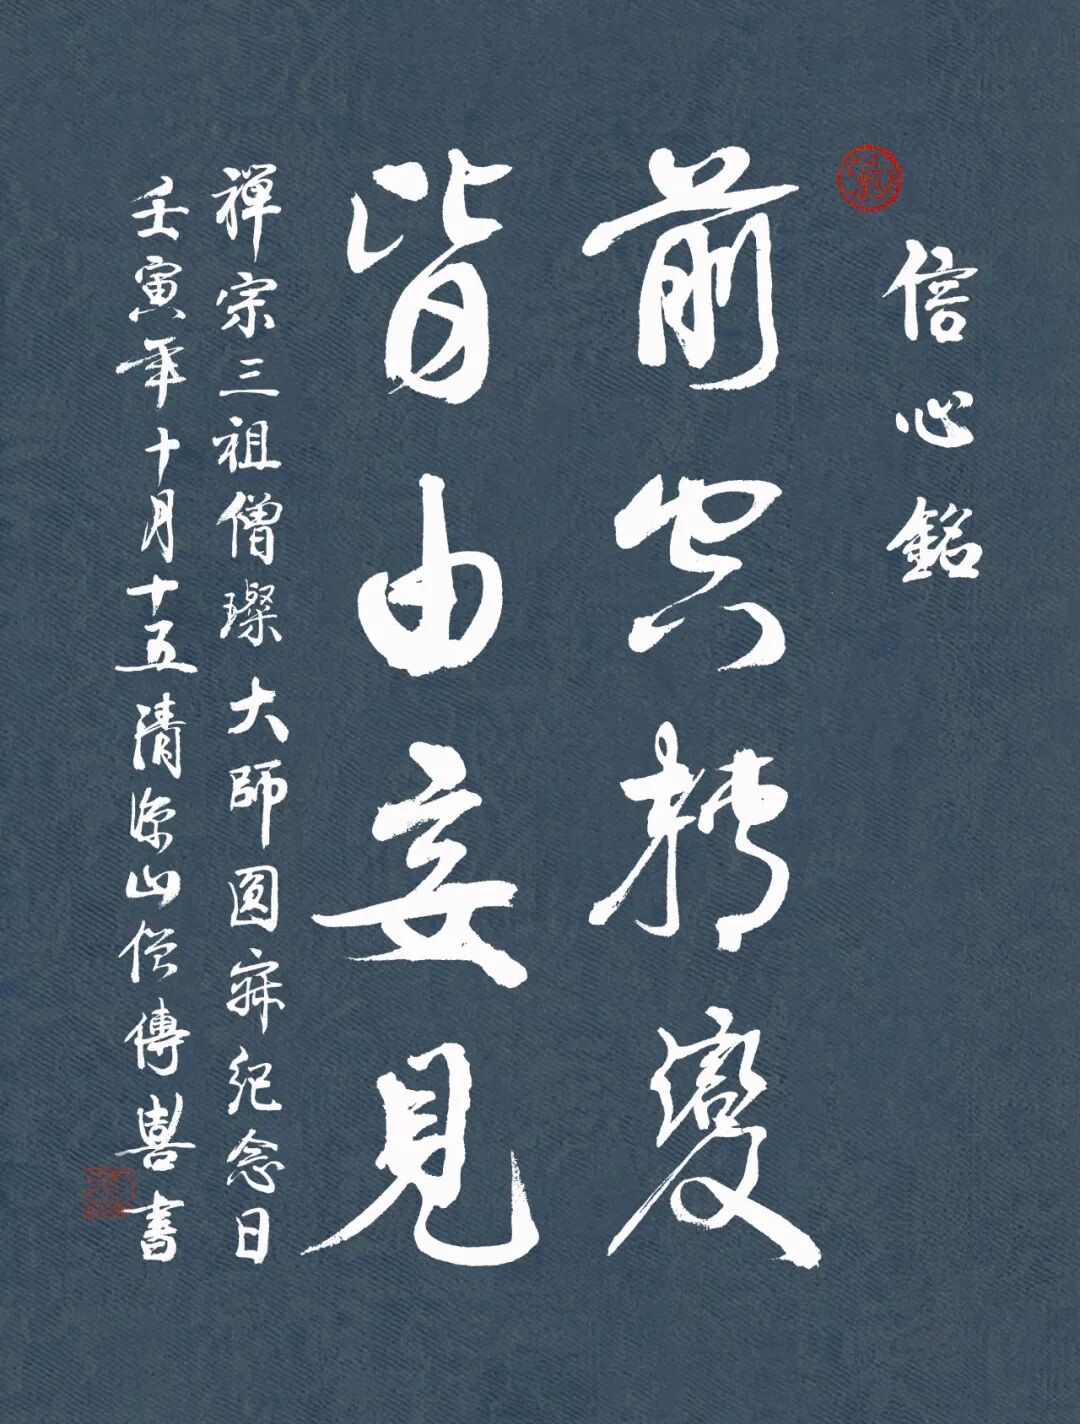 信心銘
前空轉變
皆由妄見
禪宗三祖僧璨大師圓寂紀念日
壬寅年十月十五清源山僧傳喜書